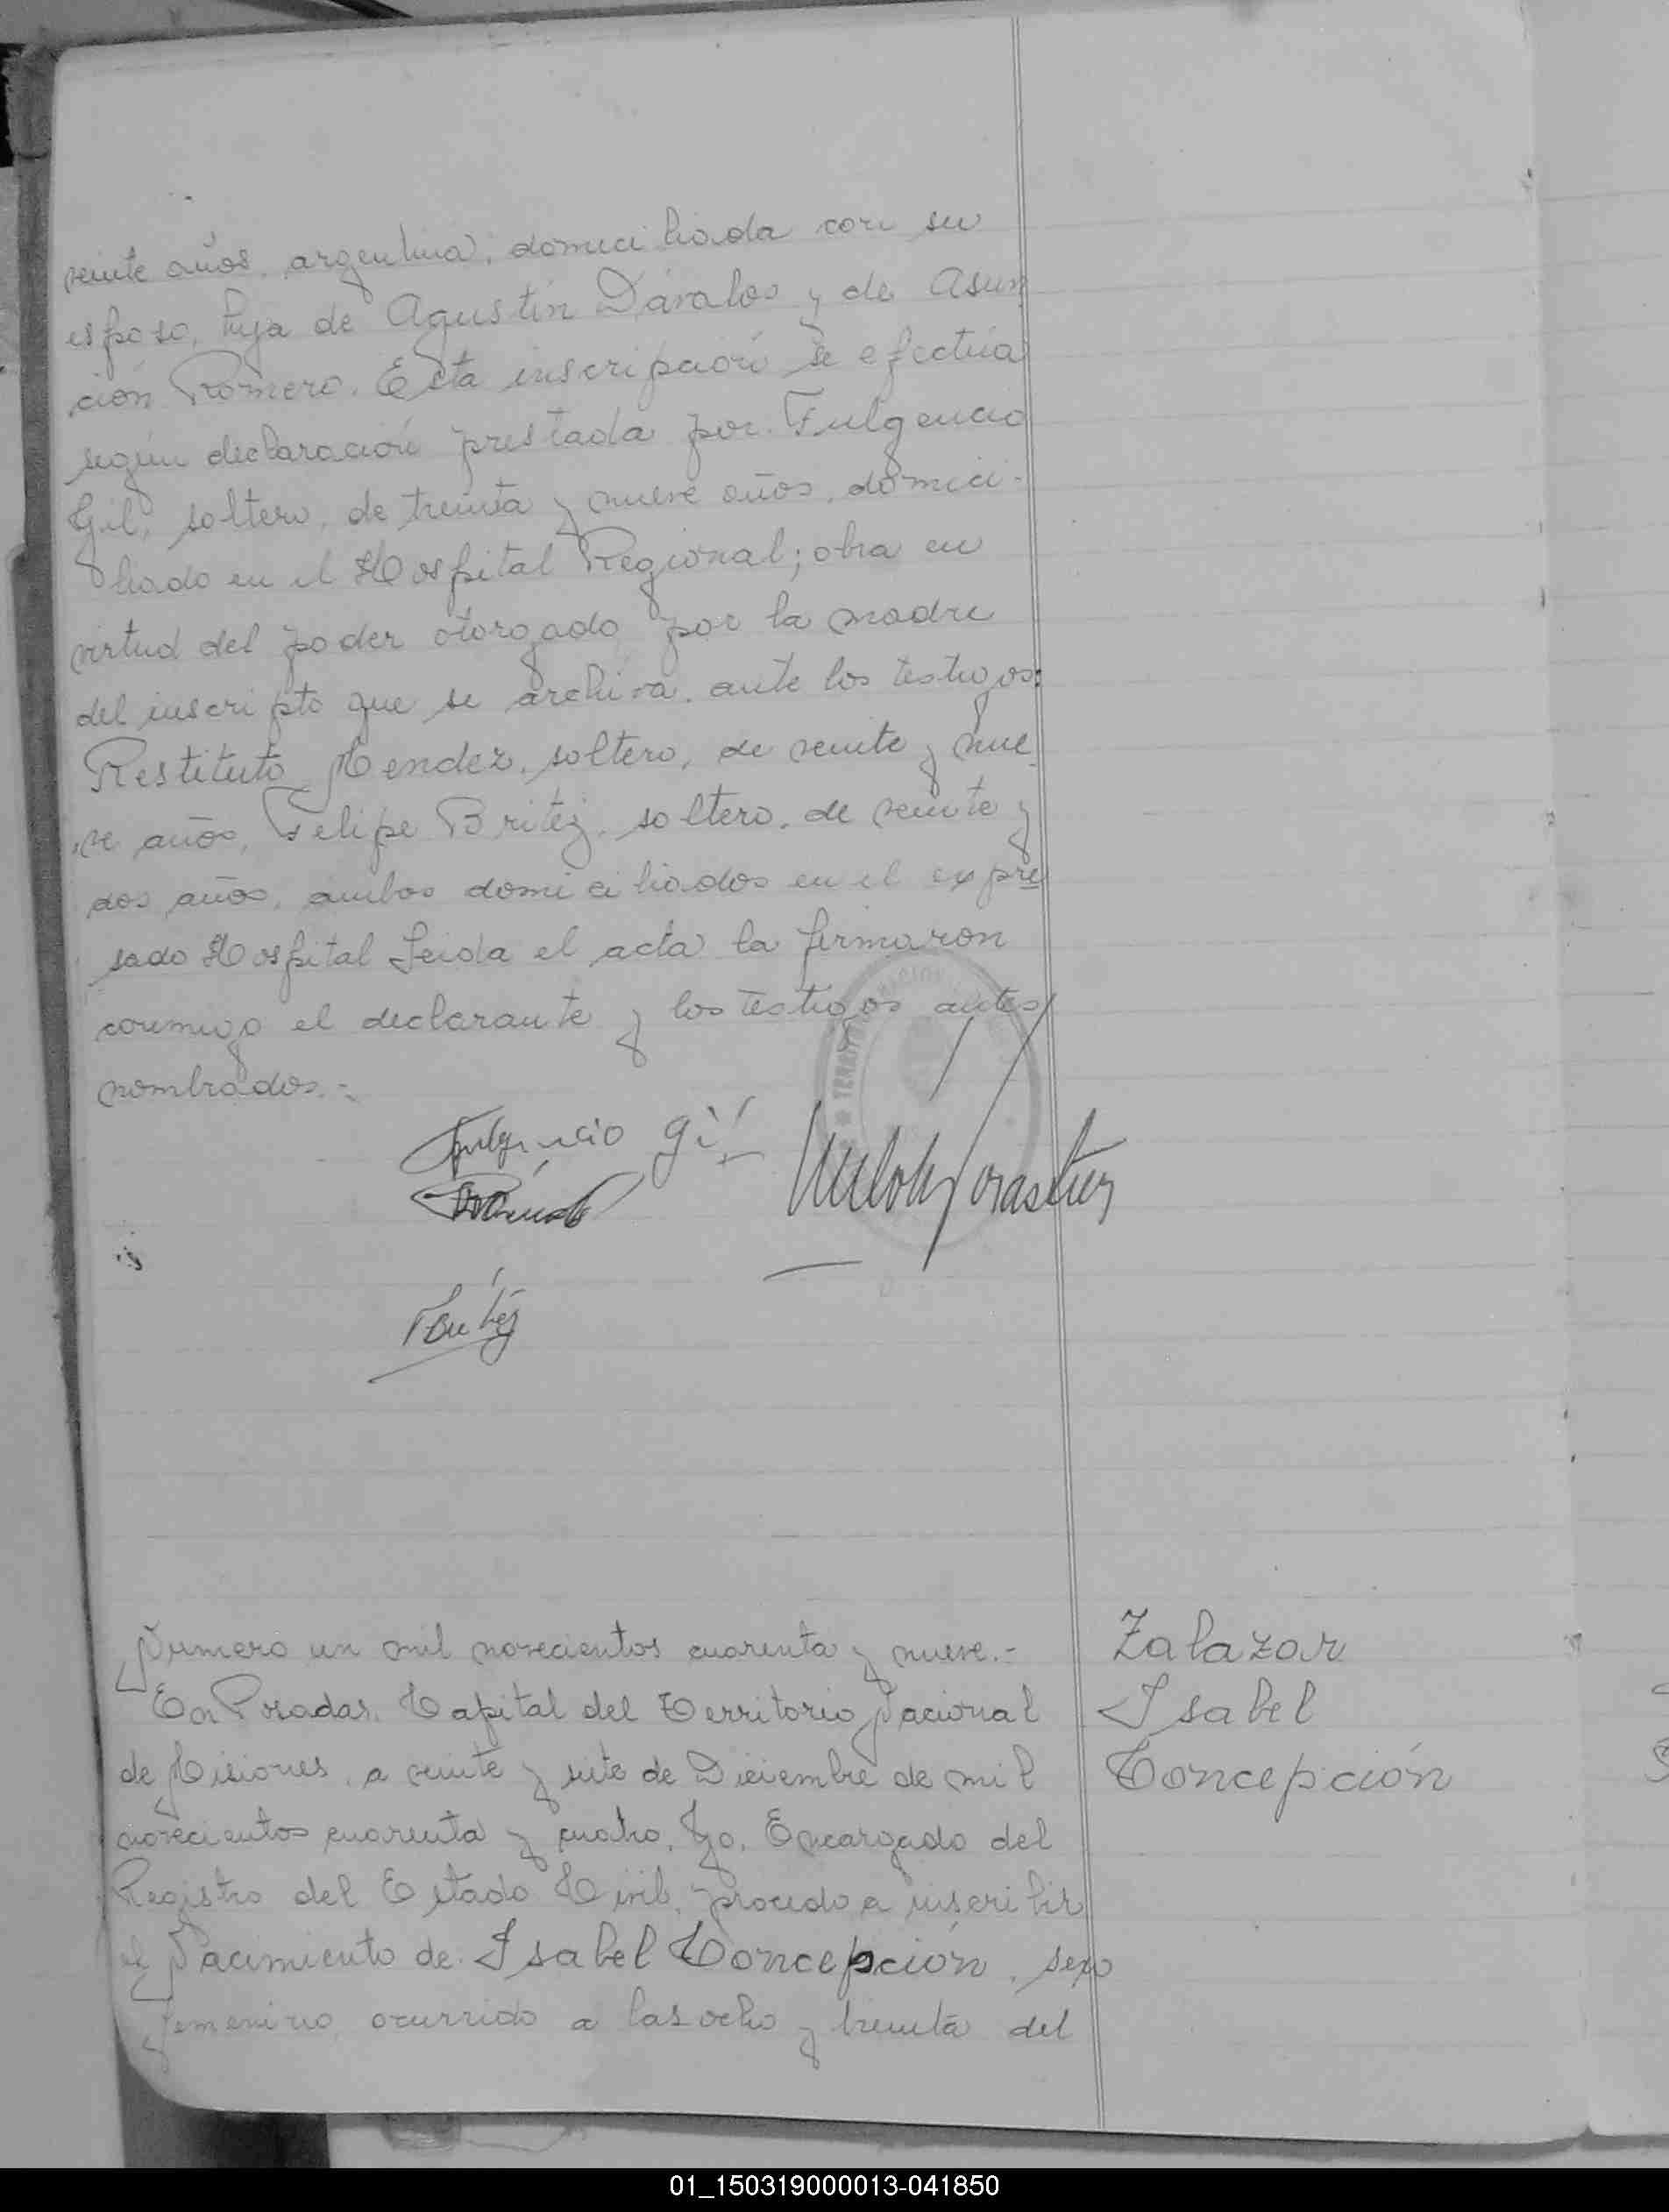 veinte años, argentina, domiciliada con su
esposo, hija de Agustín Dávalos y de Asun
ción Romero. Esta inscripción se efectúa
según declaración prestada por Fulgencio
Gil, soltero, de treinta y nueve años, domici-
liado en el Hospital Regional; obra en
virtud del poder otorgado por la madre
del inscripto que se archiva. ante los testigos:
Restituto Mendez, soltero, de veinte y nue
ve años, Felipe Britez, soltero, de veinte y
dos años, ambos domiciliados en el expre
sado Hospital Leida el acta la firmaron
conmigo el declarante y los testigos antes
nombrados.-
Fulgencio Gil
Britez
Número un mil novecientos cuarenta y nueve.-
En Posadas, Capital del Territorio Nacional
de Misiones, a veinte y siete de Diciembre de mil
novecientos cuarenta y cuatro, Yo, Encargado del
Registro del Estado Civil, procedo a inscribir
el Nacimiento de: Isabel Concepción, sexo
femenino ocurrido a las ocho y treinta del
Zalazar
Isabel
Concepción
01_150319000013-041850